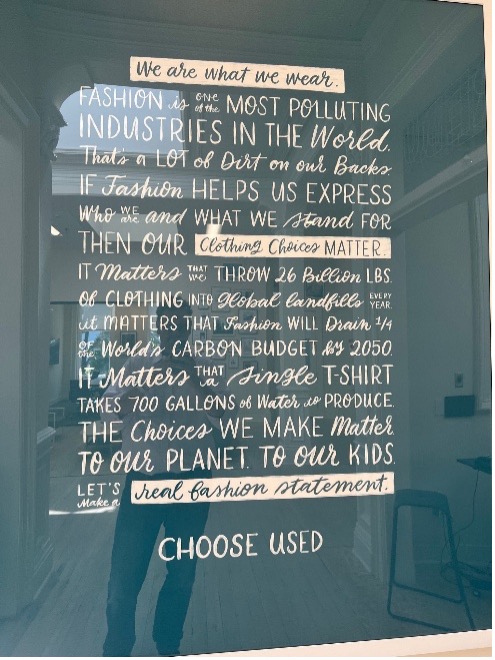 We are what we wear.
FASHION is one of the MOST POLLUTING
INDUSTRIES IN THE World.
That's a LOT of Dirt on our Backs
IF Fashion HELPS US EXPRESS
Who WE are and WHAT WE stand FOR
THEN OUR Clothing Choices MATTER.
IT Matters THAT we THROW 26 Billion LBS.
of CLOTHING INTO global landfills EVERY YEAR.
it MATTERS THAT Fashion WILL Drain 1/4
OF the World's CARBON BUDGET by 2050.
IT Matters THAT a single T-SHIRT
TAKES 700 GALLONS of Water to PRODUCE.
THE Choices WE MAKE Matter
TO OUR PLANET. TO OUR KIDS.
LET'S Make a real fashion statement.
CHOOSE USED